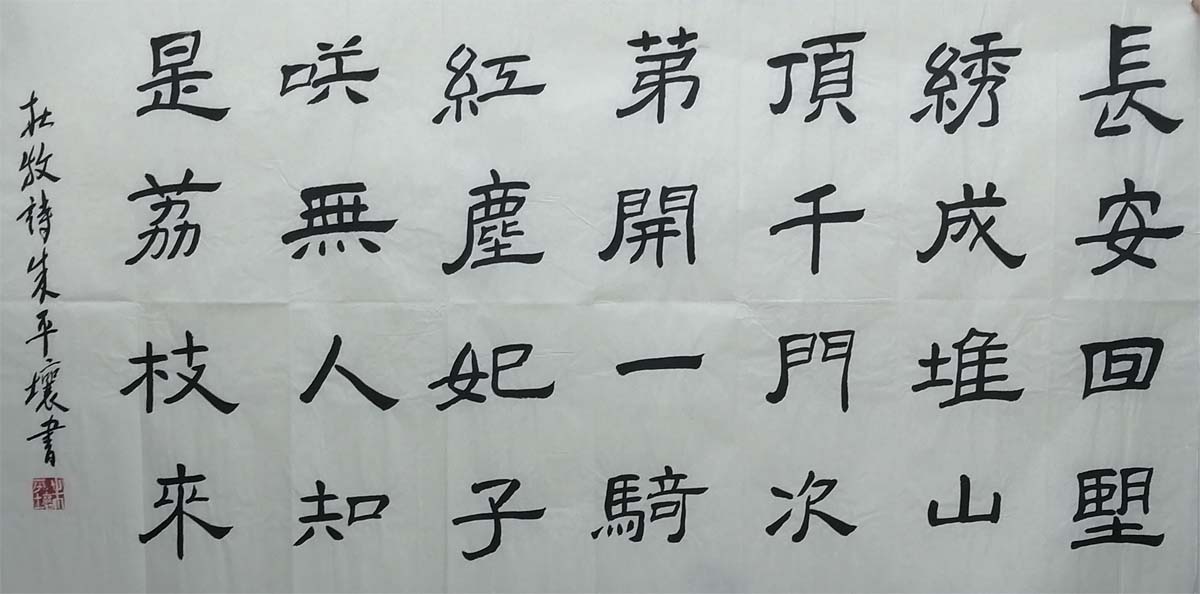 長安回望
綉成堆山
頂千門次
苐開一騎
紅塵妃子
咲無人知
是荔枝來
杜牧詩朱平壤書